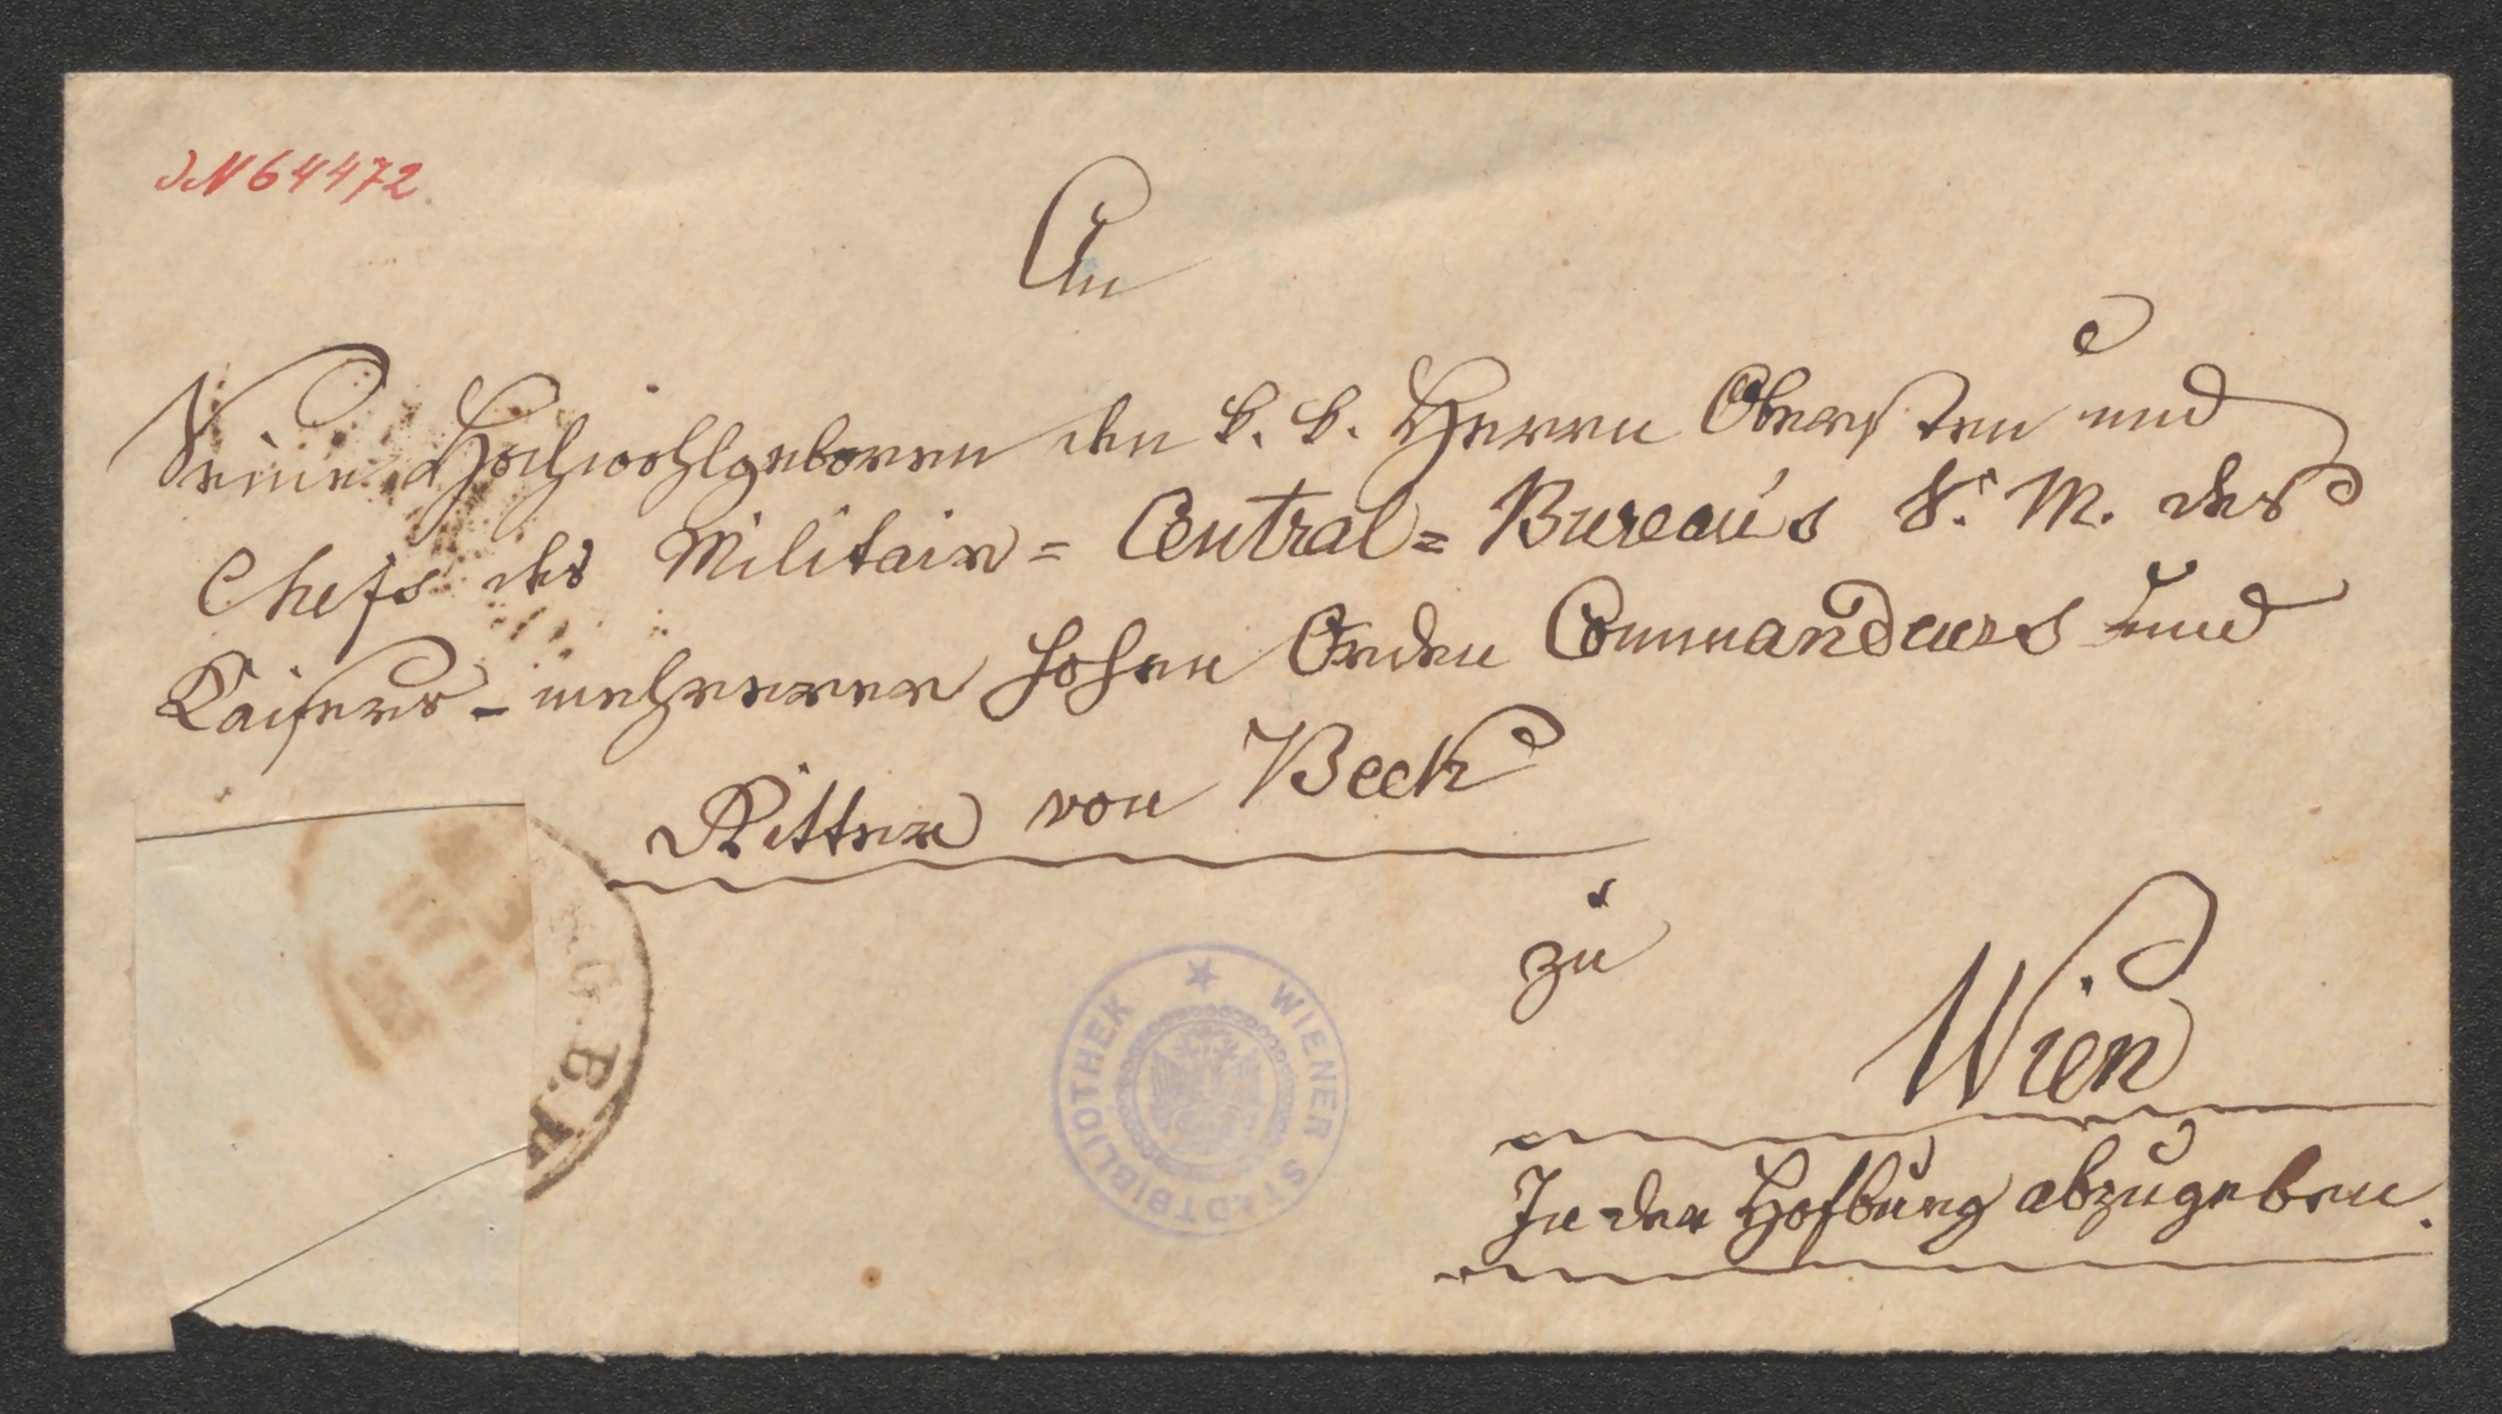 JN 64472
An
Seine Hochwohlgeboren den k. k. Herrn Obersten und
Chefs des Militair=Central=Bureau's S.r M. des
Kaisers - mehrerer hohen Orden Commandeurs und
Ritter von Beck
zu
Wien
In der Hofburg abzugeben.
WIENER STADTBIBLIOTHEK
G. B.